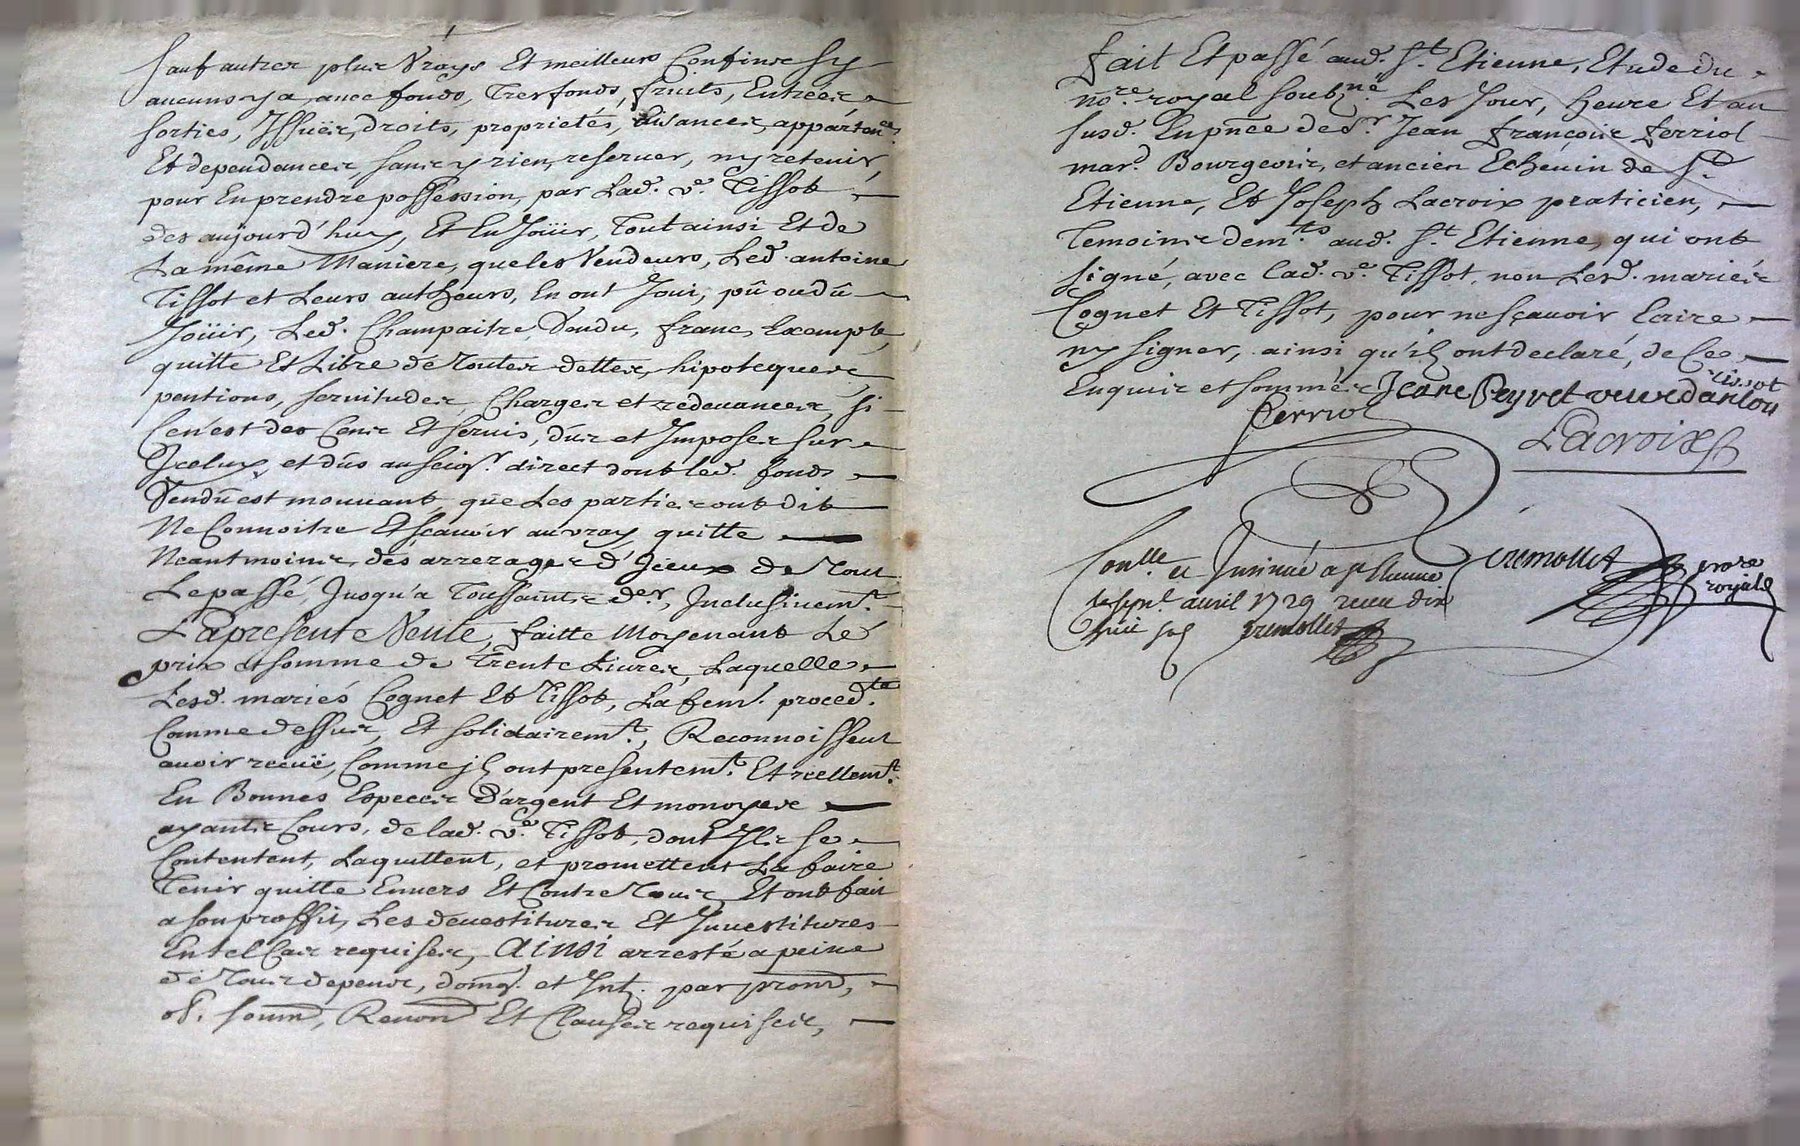 Sauf autres plus Vrays Et meilleurs Confins sy
aucuns y a, avec fonds, Tresfonds, fruits, Entrées
sorties, Issuës, droits, proprietés, Aisances, apparten.ces
Et dependances, sans y rien reserver, ny retenir,
pour En prendre possession, par Lad. v.e Tissot
des aujourd'huy, Et En Joüir, Tout ainsi Et de
La même Maniere, que les Vendeurs, Led. antoine
Tissot et Leurs autheurs, En ont Joui, pû ou dû
Joüir, Led. Champaitre Vendu, franc, Exempt,
quitte Et Libre de Toutes dettes, hipoteques
pentions, servitudes, Charges et redevances, si
Cen'est des Cens Et servis, dûs et Imposes sur
Iceluy, et dûs au seig.r direct dont led. fonds
Vendu est mouvant, que Les parties ont dit
Ne Connoitre Et sçavoir au vray, quitte
Neantmoins, des arrerages d'Iceux de Tout
Le passé, Jusqu'a Toussaints d.er, Inclusivem.t
La presente Vente, faitte Moyenant Le
prix et somme de Trente Livres, Laquelle
Lesd. mariés Cognet Et Tissot, La fem. proced.te
Comme dessus, Et solidairem.t, Reconnoissent
avoir receüe, Comme jls ont presentem.t Et reellem.t
En Bonnes Especes D'argent Et monoyes
ayants Cours, de lad. v.e Tissot, dont Ils se
Contentent, La quittent, et promettent La faire
Tenir quitte Envers Et Contre Tous, Et ont fait
a son proffit, Les devestitures Et Investitures
En tel Cas requises, Ainsi arresté a peine
de Tous depens, dom. et Int. par prom,
ob. soum, Renon Et Clauses requises,
fait Et passé aud. S.t Etienne, Etude du
no.re royal soub.né Les Jour, heure Et an
susd. En pnce de s.r Jean françois ferriol
mar.d Bourgeois, et ancien Echevin de S.t
Etienne, Et Joseph Lacroix praticien,
Temoins dem.ts aud. S.t Etienne, qui ont
signé, avec lad. v.e Tissot, non Lesd. mariés
Cognet Et Tissot, pour ne sçavoir Ecrire
ny signer, ainsi qu'ils ont declaré, de Ce
Enquis et sommés Jeane Peyret veuve dantou
tissot
Ferriol
Lacroix
Tremollet
no.re
royal
Con.lle et Insinué a S.t Etienne
le sept. avril 1729 receu dix
huit sols Tremollet